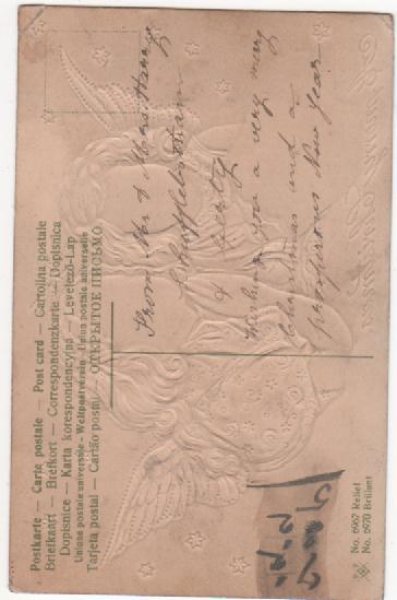 Postkarte — Carte postale — Post card — Cartolina postale
Briefkaart — Brefkort — Correspondenzkarte — Dopisnica
Dopisnice — Karta korespondencyjna — Levelező-Lap
Union postale universelle - Weltpostverein - Union postale universelle
Tarjeta postal — Cartão postal — ОТКРЫТОЕ ПИСЬМО
From Mr & Mrs Harry
& Betty
Wishing you a very merry
Christmas and a
prosperous New Year
No. 6967 Relief
No. 6970 Brillant